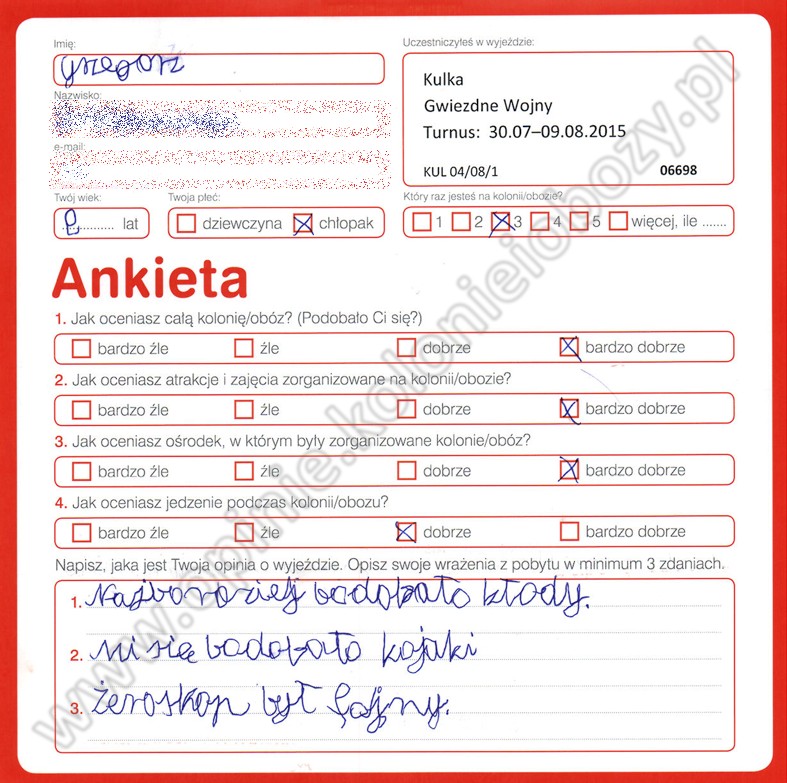 Imię:
Uczestniczyłeś w wyjeździe:
Grzegorz
Kulka
Gwiezdne Wojny
Turnus: 30.07–09.08.2015
KUL 04/08/1 06698
Nazwisko:
e-mail:
Twój wiek: Twoja płeć: Który raz jesteś na kolonii/obozie?
lat dziewczyna chłopak 1 2 3 4 5 więcej, ile .......
Ankieta
1. Jak oceniasz całą kolonię/obóz? (Podobało Ci się?)
bardzo źle źle dobrze bardzo dobrze
2. Jak oceniasz atrakcje i zajęcia zorganizowane na kolonii/obozie?
bardzo źle źle dobrze bardzo dobrze
3. Jak oceniasz ośrodek, w którym były zorganizowane kolonie/obóz?
bardzo źle źle dobrze bardzo dobrze
4. Jak oceniasz jedzenie podczas kolonii/obozu?
bardzo źle źle dobrze bardzo dobrze
Napisz, jaka jest Twoja opinia o wyjeździe. Opisz swoje wrażenia z pobytu w minimum 3 zdaniach.
1. kłody.
2. mi się kajaki
3. żeroskop był fajny.
www.opinie.kolonieiobozy.pl